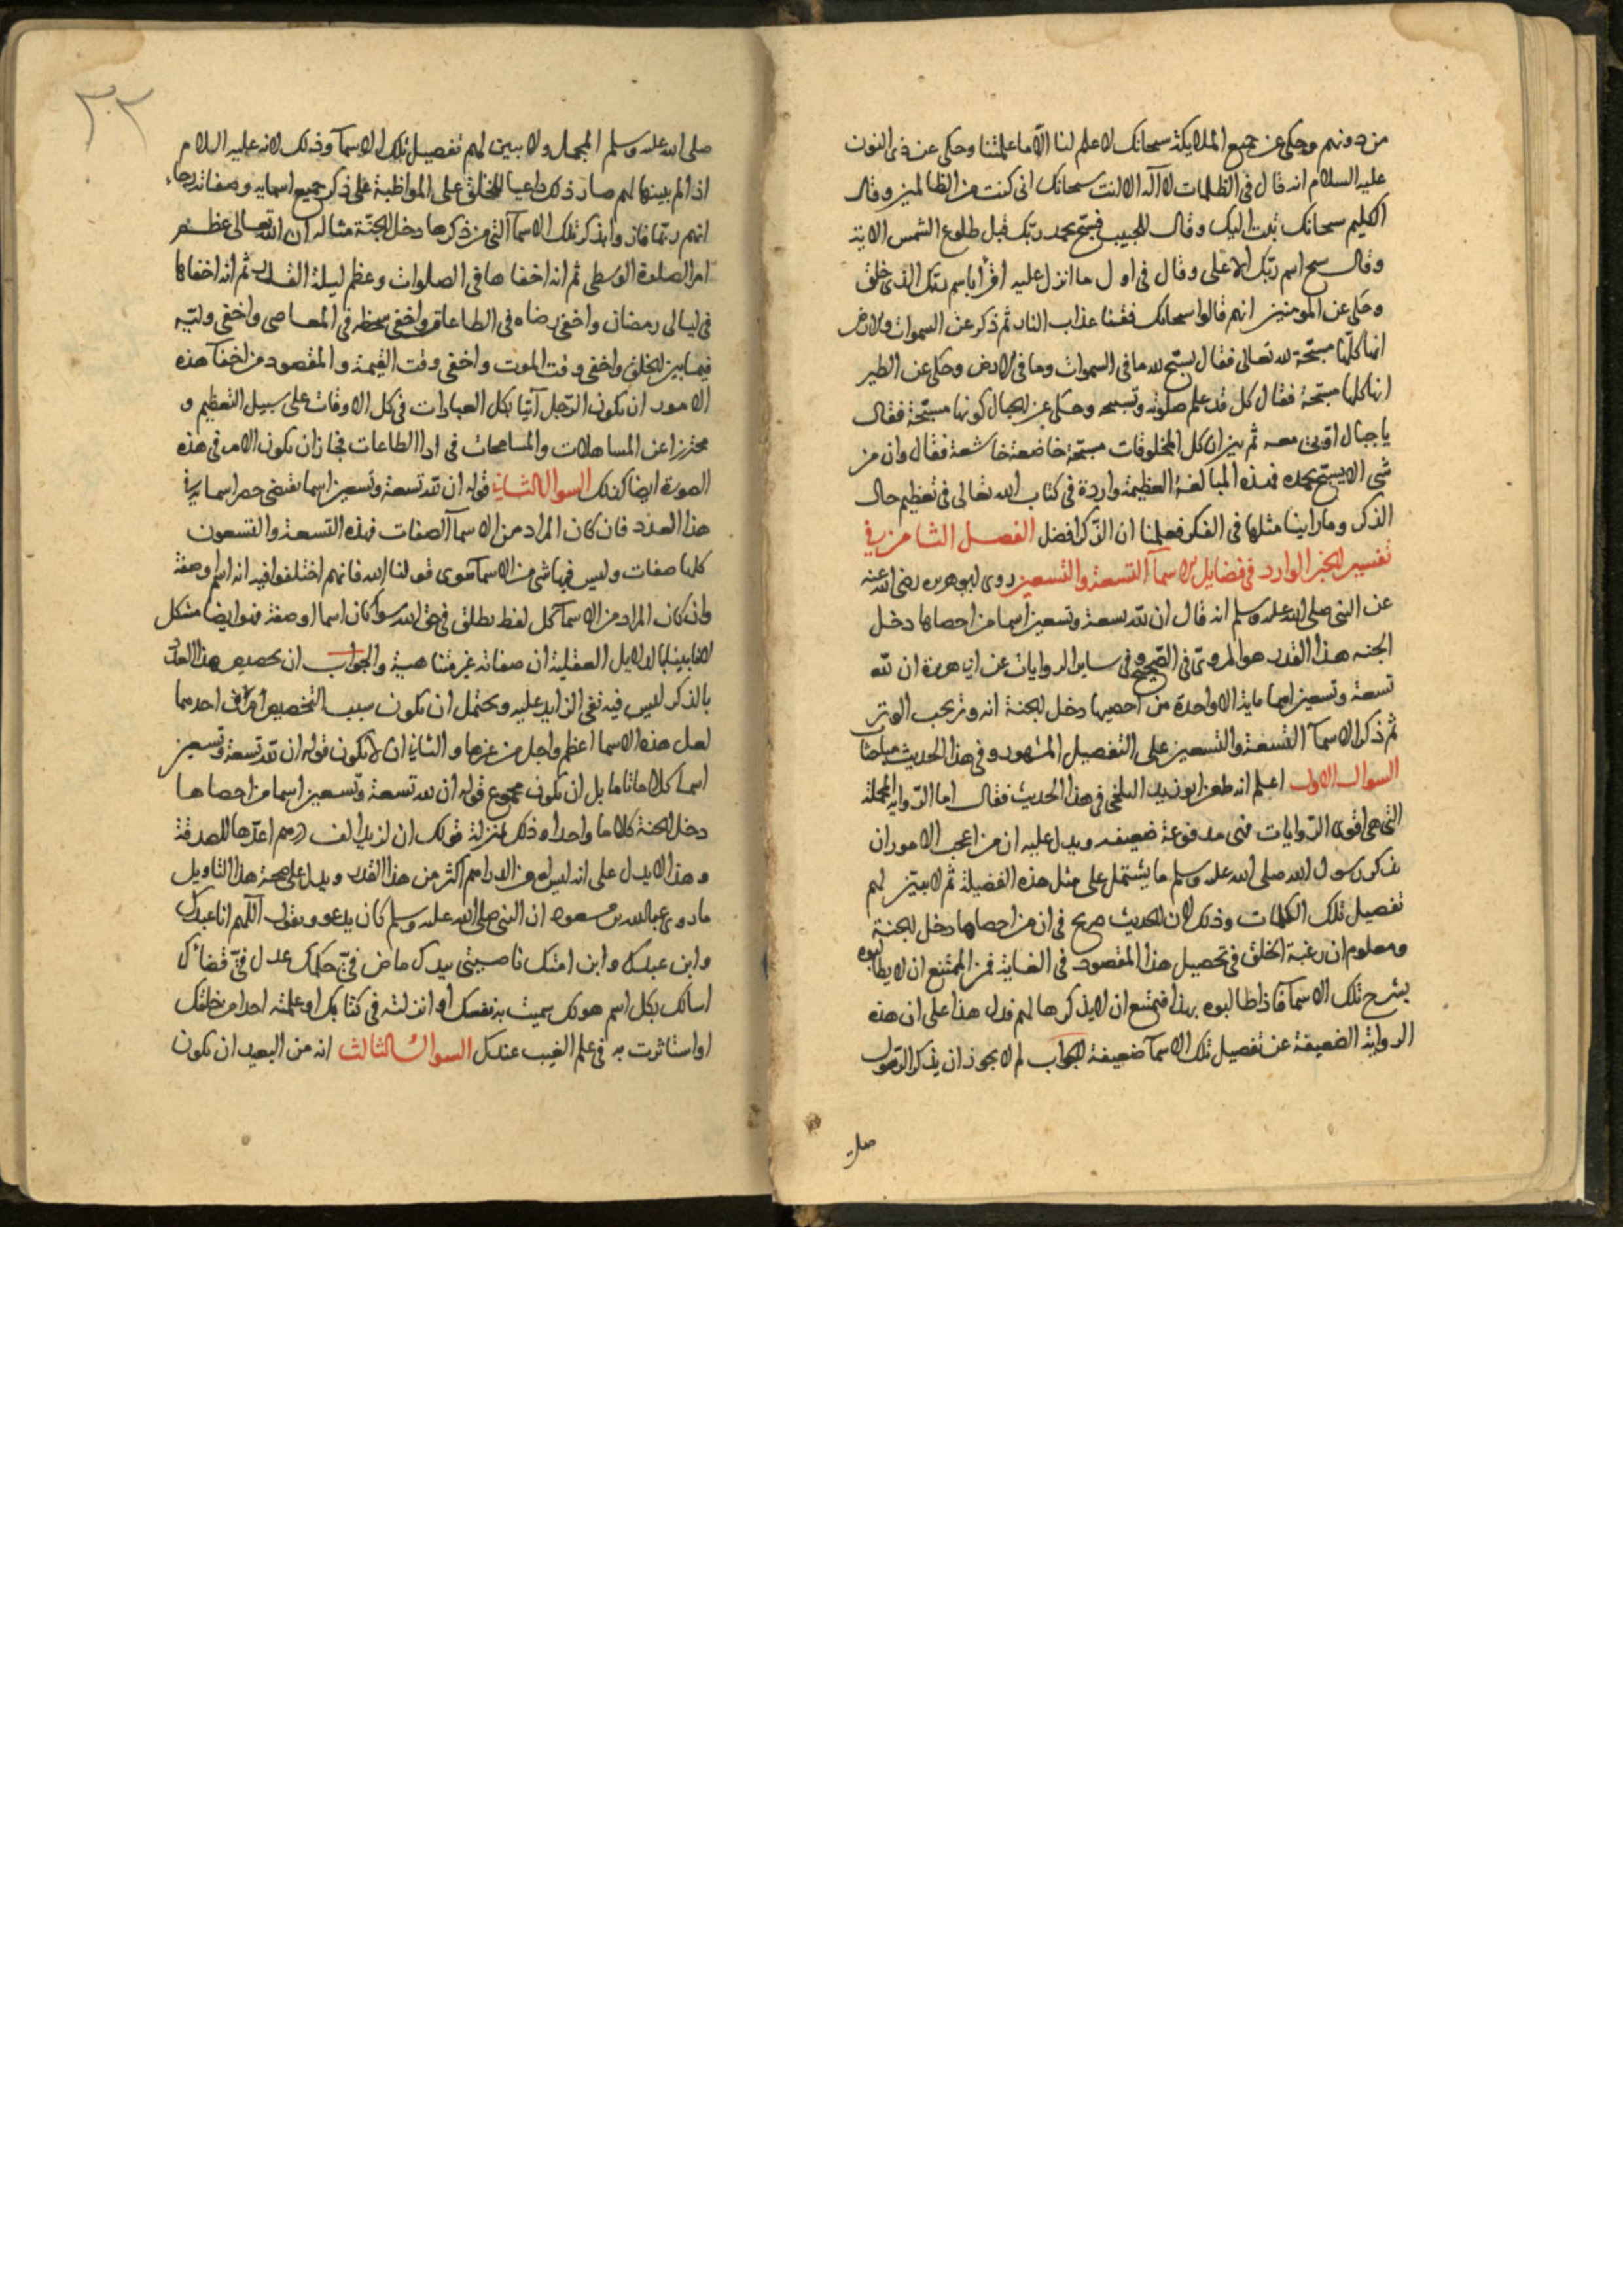 من دونهم وحكى عن جميع الملايكة سبحانك لا علم لنا الا ما علمتنا وحكى عن ذى النون
عليه السلام انه قال فى الظلمات لا اله الا انت سبحانك انى كنت من الظالمين وقال
الكليم سبحانك تبت اليك وقال للحبيب فسبح بحمد ربك قبل طلوع الشمس الاية
وقال سبح اسم ربك الاعلى وقال فى اول ما انزل عليه اقرأ باسم ربك الذى خلق
وحكى عن المومنين انهم قالوا سبحانك فقنا عذاب النار ثم ذكر عن السموات والارض
انها كلها مسبّحة لله تعالى فقال يسبح لله ما فى السموات وما فى الارض وحكى عن الطير
انها كلها مسبحة فقال كل قد علم صلوته وتسبيحه وحكى عن الجبال كونها مسبّحة فقال
يا جبال اوبى معه ثم بين ان كل المخلوقات مسبحة خاضعة خاشعة فقال وان من
شى الا يسبح بحمده فهذه المبالغة العظيمة واردة فى كتاب الله تعالى فى تعظيم حال
الذكر وما راينا مثلها فى الفكر فعلمنا ان الذّكر افضل الفصل الثامن فى
تفسير الخبر الوارد فى فضايل الاسمآ التسعة والتسعين روى ابو هريره رضى الله عنه
عن النبى صلى الله عليه وسلم انه قال ان لله تسعة وتسعين اسما من احصاها دخل
الجنه هذا القدر هو المروىّ فى الصّحيح وفى ساير الروايات عن ابى هريرة ان لله
تسعة وتسعين اسما ماية الا واحدة من احصيها دخل الجنة انه وتر يحب الوتر
ثم ذكر الاسمآ التسعة والتسعين على التفصيل المشهور وفى هذا الحديث مباحثا
السوال الاول اعلم انه طعن ابو زيد البلخى فى هذا الحديث فقال اما الرّوايه المجملة
التى هى اقوى الرّوايات فهى مدفوعة ضعيفه ويدل عليه ان من اعجب الامور ان
يذكر رسول الله صلى الله عليه وسلم ما يشتمل على مثل هذه الفضيلة ثم لا يبيّن لهم
تفصيل تلك الكلمات وذلك لان الحديث صريح فى ان من احصاها دخل الجنة
ومعلوم ان رغبة الخلق فى تحصيل هذا المقصود فى الغاية فمن الممتنع ان لا يطالبوه
بشرح تلك الاسمآ فاذا طالبوه بهذا فيمتنع ان لا يذكرها لهم فدل هذا على ان هذه
الرواية الضعيفة عن تفصيل تلك الاسمآ ضعيفة الجواب لم لا يجوز ان يذكر الرّسول
صلى
٣٠٢
صلى الله عليه وسلم المجمل ولا يبين لهم تفصيل تلك الاسمآ وذلك لانه عليه السلام
اذا لم يبينها لهم صار ذلك داعيا للخلق على المواظبة على ذكر جميع اسمايه وصفاته رجاء
انهم ربّما فازوا بذكر تلك الاسمآ التى من ذكرها دخل الجنّة مثاله ان الله تعالى عظم
امر الصلوة الوسطى ثم انه اخفاها فى الصلوات وعظم ليلة القدر ثم انه اخفاها
فى ليالى رمضان واخفى رضاه فى الطاعات واخفى سخطه فى المعاصى واخفى وليّه
فيما بين الخلق واخفى وقت الموت واخفى وقت القيمة والمقصود من اخفآ هذه
الامور ان يكون الرّجل آتيا بكل العبادات فى كل الاوقات على سبيل التعظيم و
محترزا عن المساهلات والمسامحات فى ادا الطاعات فجاز ان يكون الامر فى هذه
الصورة ايضا كذلك السوال الثانى قوله ان لله تسعة وتسعين اسما يقتضى حصر اسمايه فى
هذا العدد فان كان المراد من الاسمآ الصفات فهذه التسعة والتسعون
كلها صفات وليس فيها شى من الاسمآ سوى قولنا الله فانهم اختلفوا فيه انه اسم او صفة
وان كان المراد من الاسمآ كل لفظ يطلق فى حق الله سوآ كان اسما او صفة فهو ايضا مشكل
لانا بينا بالدلايل العقلية ان صفاته غير متناهية والجواب ان تخصيص هذا العدد
بالذكر ليس فيه نفى الزايد عليه ويحتمل ان يكون سبب التخصيص امرين احدهما
لعل هذه الاسما اعظم واجل من غيرها والثانى ان لا يكون قوله ان لله تسعة وتسعين
اسما كلاما تاما بل ان يكون مجموع قوله ان لله تسعة وتسعين اسما من احصاها
دخل الجنة كلاما واحدا وذلك بمنزلة قولك ان لزيد الف درهم اعدّها للصدقة
وهذا لا يدل على انه ليس له من الدراهم اكثر من هذا القدر ويدل على صحة هذا التاويل
ما روى عبدالله بن مسعود ان النبى صلى الله عليه وسلم كان يدعو ويقول اللّهم انا عبدك
وابن عبدك وابن امتك ناصيتى بيدك ماض فىّ حكمك عدل فىّ قضاؤك
اسالك بكل اسم هو لك سميت به نفسك او انزلته فى كتابك او علمته احدا من خلقك
او استاثرت به فى علم الغيب عندك السوال الثالث انه من البعيد ان يكون